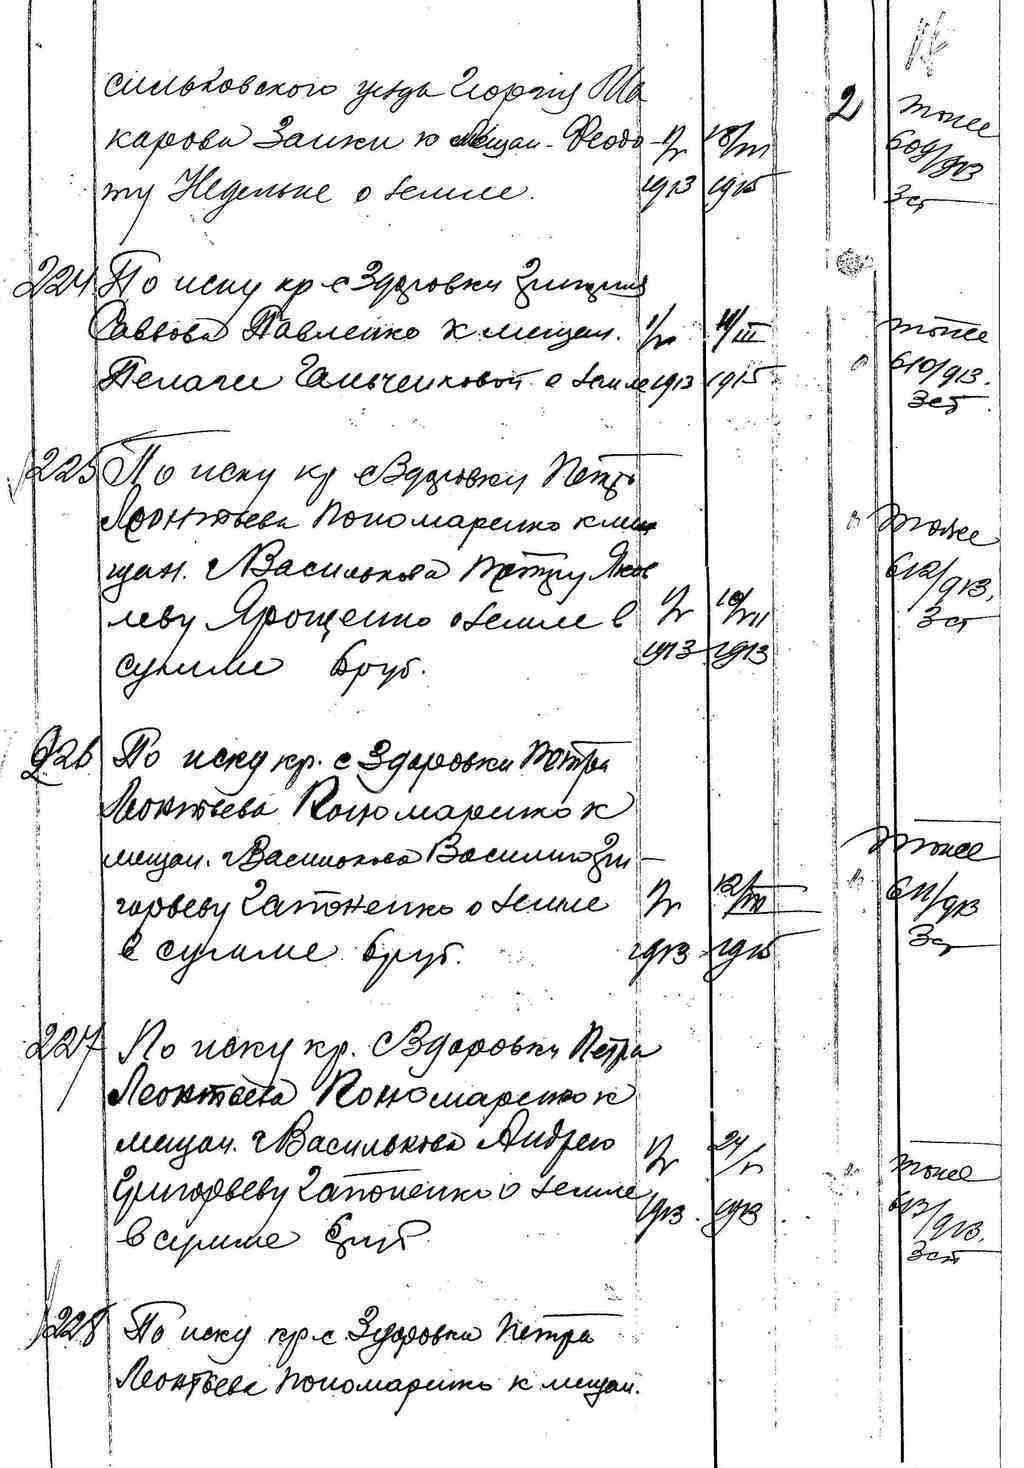 сильковского уезда Георгия Ма
карова Заики к мещан. Феодо-
ту Недельке о земле.
1913 1915
2
тоже
609/913
3 ст
224 По иску кр. с Здоровки Григория
Саввова Павленко к мещан.
Пелагеи Гальченковой о земле 1913 1915
тоже
610/913.
3 ст
225 По иску кр. с Здоровки Петра
Леонтьева Пономаренко к ме
щан. г Василькова Петру Яков
леву Ярощенко о земле в
сумме 6 руб.
1913 1913
тоже
612/913.
3 ст
226 По иску кр. с Здоровки Петра
Леонтьева Пономаренко к
мещан. г Василькова Василию Гри-
горьеву Гапоненко о земле
в сумме 6 руб.
1913 1915
тоже
611/913
3 ст
227 По иску кр. с Здоровки Петра
Леонтьева Пономаренко к
мещан. г Василькова Андрею
Григорьеву Гапоненко о земле
в сумме руб
1913 1913
тоже
613/913.
3 ст
228 По иску кр. с Здоровки Петра
Леонтьева Пономаренко к мещан.